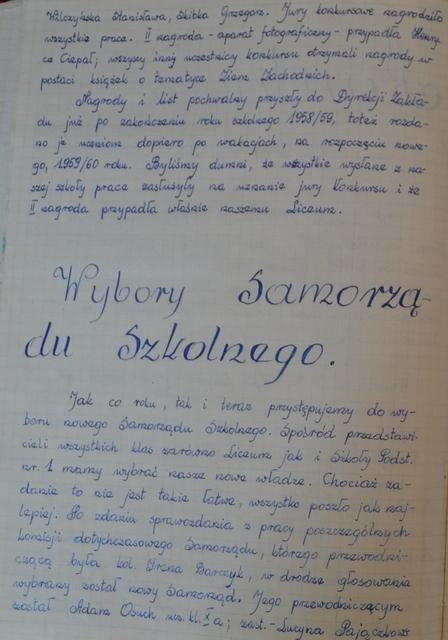 Wilczyńska Stanisława, Skitka Grzegorz. Jury konkursowe nagrodziło
wszystkie prace. II nagroda - aparat fotograficzny - przypadła
ce Ciepał; wszyscy inni uczestnicy konkursu otrzymali nagrody w
postaci książek o tematyce Ziem Zachodnich.
Nagrody i list pochwalny przyszły do Dyrekcji Zakła-
du już po zakończeniu roku szkolnego 1958/59, toteż rozda-
no je uczniom dopiero po wakacjach, na rozpoczęciu nowe-
go, 1959/60 roku. Byliśmy dumni, że wszystkie wysłane z na-
szej szkoły prace zasłużyły na uznanie jury konkursu i że
II nagroda przypadła właśnie naszemu Liceum.
Wybory Samorzą-
du Szkolnego.
Jak co roku, tak i teraz przystępujemy do wy-
boru nowego Samorządu Szkolnego. Spośród przedstawi-
cieli wszystkich klas zarówno Liceum jak i Szkoły Podst.
nr. 1 mamy wybrać nasze nowe władze. Chociaż za-
danie to nie jest takie łatwe, wszystko poszło jak naj-
lepiej. Po zdaniu sprawozdania z pracy poszczególnych
komisji dotychczasowego Samorządu, którego przewodni-
czącą była kol. Irena Barczyk, w drodze głosowania
wybrany został nowy Samorząd. Jego przewodniczącym
został Adam Osuch ucz. kl. Xa; zast. - Lucyna Pajączkows